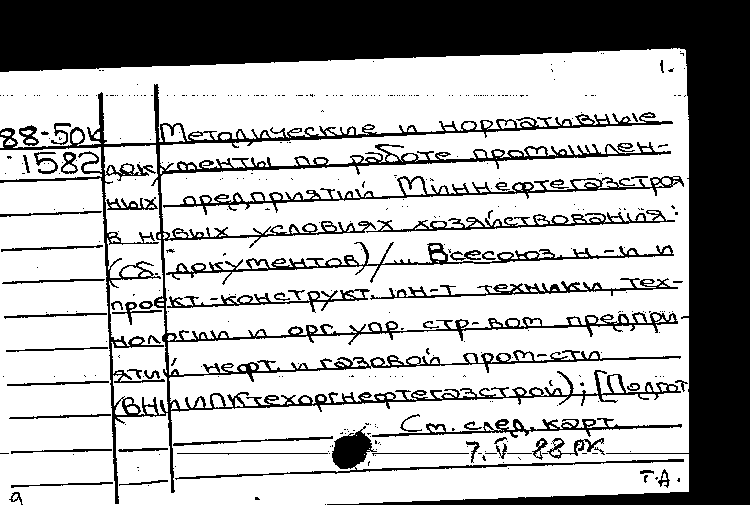 1.
88-50к Методические и нормативные
1582 документы по работе промышлен-
ных предприятий Миннефтегазстроя
в новых условиях хозяйствования:
(Сб. документов)/... Всесоюз. н.-и и
проект.-конструкт. ин-т техники, тех-
нологии и орг. упр. стр-вом предпри-
ятий нефт. и газовой пром-сти
(ВНИИПКтехоргнефтегазстрой); [Подгот.
См. след. карт.
7.V 88 РК
Т.А.
а